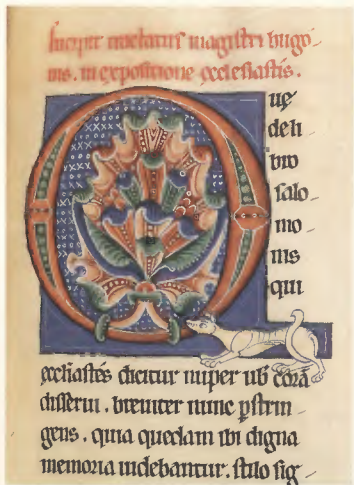 Incipit tractatus magistri hugo-
nis. in expositione ęcclesiastis.
Quę
de li-
bro
salo-
mo-
nis
qui
ęccl̄iastes dicitur nuper uob̄ corā
disserui. breuiter nunc p̄strin-
gens. quia quedam ibi digna
memoria uidebantur. stilo sig-